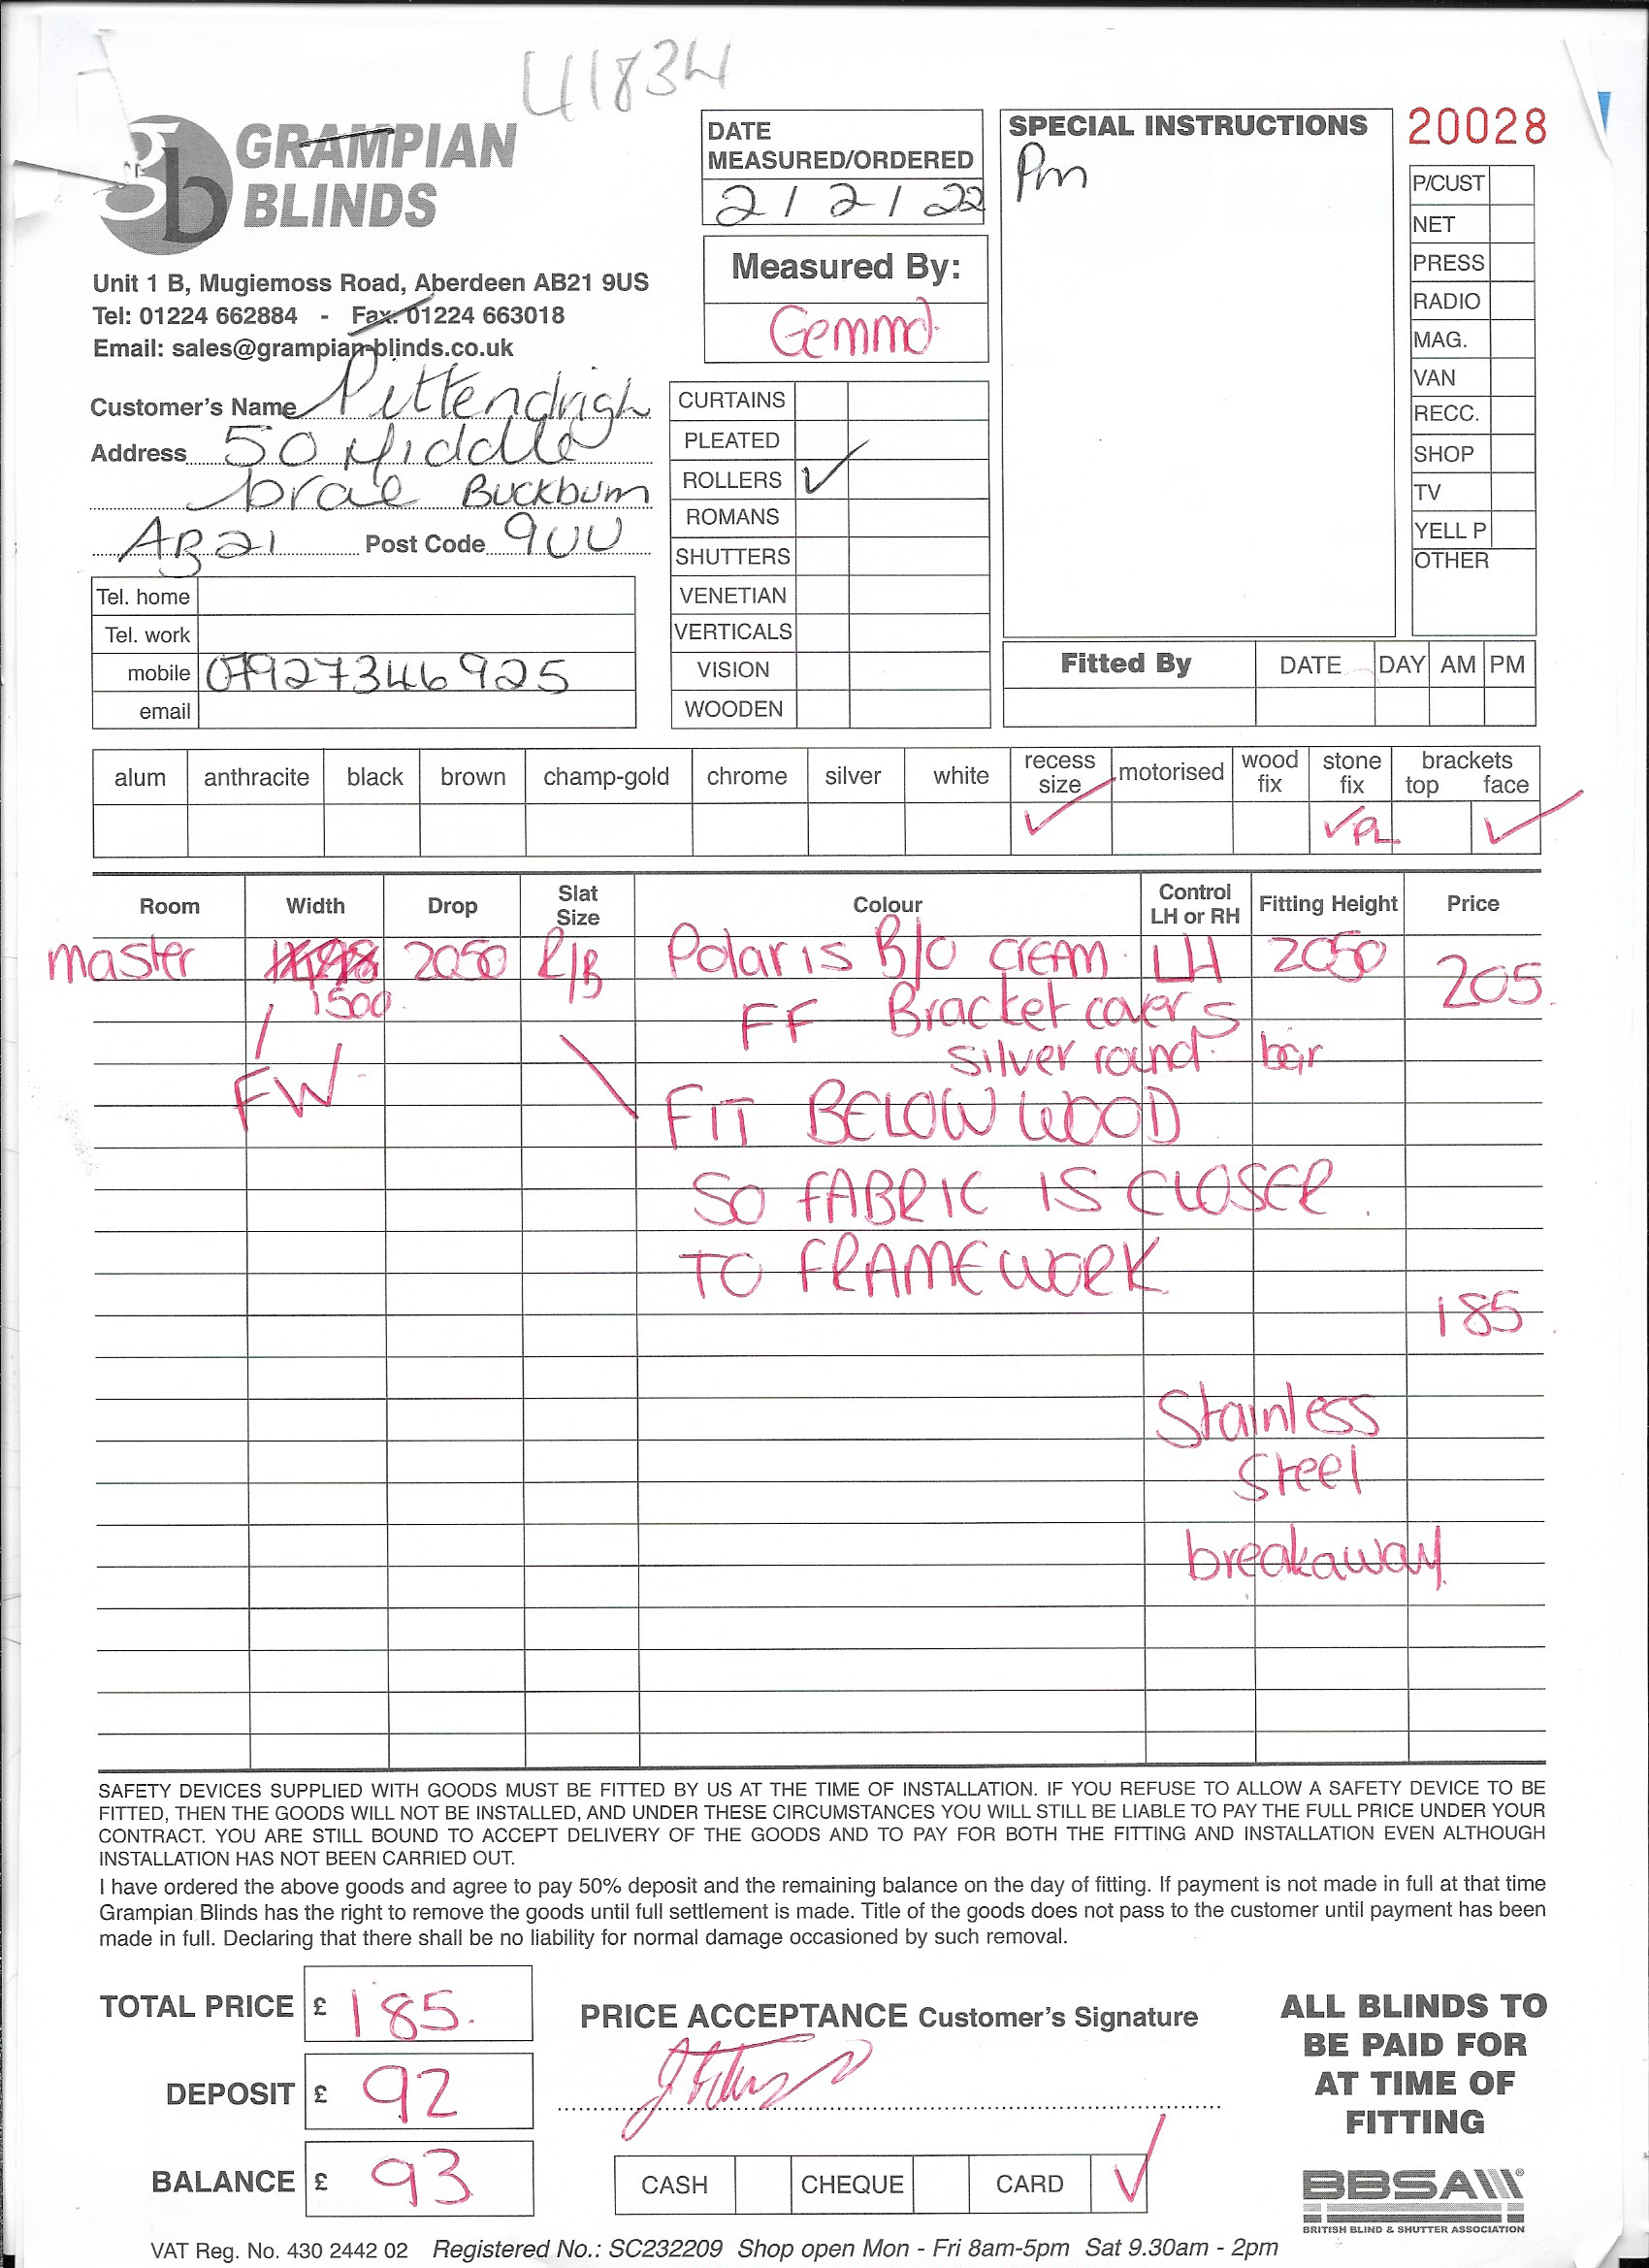 41834
GRAMPIAN
BLINDS
Unit 1 B, Mugiemoss Road, Aberdeen AB21 9US
Tel: 01224 662884 - Fax: 01224 663018
Email: sales@grampian-blinds.co.uk
Customer's Name Pittendrigh
Address 50 Middle
brae Buckburn
AB21 Post Code 9UU
Tel. home
Tel. work
mobile 07927346925
email
DATE
MEASURED/ORDERED
2/2/22
Measured By:
Gemma
CURTAINS
PLEATED
ROLLERS ✓
ROMANS
SHUTTERS
VENETIAN
VERTICALS
VISION
WOODEN
SPECIAL INSTRUCTIONS
Pm
20028
P/CUST
NET
PRESS
RADIO
MAG.
VAN
RECC.
SHOP
TV
YELL P
OTHER
Fitted By DATE DAY AM PM
alum anthracite black brown champ-gold chrome silver white recess size motorised wood fix stone fix brackets top face
✓ ✓PL ✓
Room Width Drop Slat Size Colour Control LH or RH Fitting Height Price
master 2050 R/B Polaris B/O cream. LH 2050 205.
1500 FF Bracket covers
silver round bar
FW FIT BELOW WOOD
SO FABRIC IS CLOSER.
TO FRAMEWORK
185
Stainless
Steel
breakaway
SAFETY DEVICES SUPPLIED WITH GOODS MUST BE FITTED BY US AT THE TIME OF INSTALLATION. IF YOU REFUSE TO ALLOW A SAFETY DEVICE TO BE
FITTED, THEN THE GOODS WILL NOT BE INSTALLED, AND UNDER THESE CIRCUMSTANCES YOU WILL STILL BE LIABLE TO PAY THE FULL PRICE UNDER YOUR
CONTRACT. YOU ARE STILL BOUND TO ACCEPT DELIVERY OF THE GOODS AND TO PAY FOR BOTH THE FITTING AND INSTALLATION EVEN ALTHOUGH
INSTALLATION HAS NOT BEEN CARRIED OUT.
I have ordered the above goods and agree to pay 50% deposit and the remaining balance on the day of fitting. If payment is not made in full at that time
Grampian Blinds has the right to remove the goods until full settlement is made. Title of the goods does not pass to the customer until payment has been
made in full. Declaring that there shall be no liability for normal damage occasioned by such removal.
TOTAL PRICE £ 185.
DEPOSIT £ 92
BALANCE £ 93
PRICE ACCEPTANCE Customer's Signature
CASH CHEQUE CARD ✓
ALL BLINDS TO
BE PAID FOR
AT TIME OF
FITTING
BBSA
BRITISH BLIND & SHUTTER ASSOCIATION
VAT Reg. No. 430 2442 02 Registered No.: SC232209 Shop open Mon - Fri 8am-5pm Sat 9.30am - 2pm